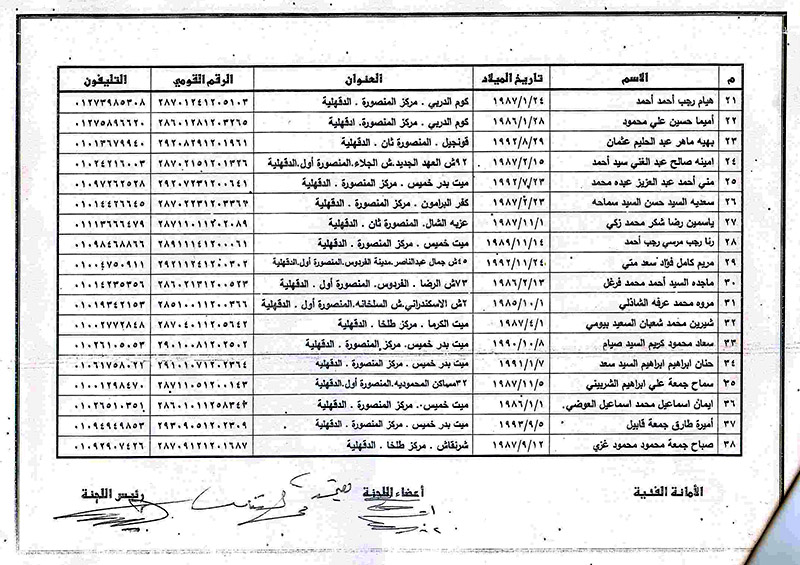 م الاسم تاريخ الميلاد العنوان الرقم القومي التليفون
٢١ هيام رجب أحمد أحمد ١٩٨٧/١/٢٤ كوم الدربي . مركز المنصورة . الدقهلية ٢٨٧٠١٢٤١٢٠٥١٠٣ ٠١٢٧٣٩٨٥٣٠٨
٢٢ أميما حسين علي محمود ١٩٨٦/١/٢٨ كوم الدربي . مركز المنصورة . ادقهلية ٢٨٦٠١٢٨١٢٠٣٢٦٥ ٠١٢٧٥٨٩٦٦٢٠
٢٣ بهيه ماهر عبد الحليم عثمان ١٩٩٢/٨/٢٩ قونجيل . المنصورة ثان . الدقهلية ٢٩٢٠٨٢٩١٢٠١٩٦١ ٠١٠١٣٦٧٩٩٤٠
٢٤ امينه صالح عبد الغني سيد أحمد ١٩٨٧/٢/١٥ ٩٢ش العهد الجديد.ش الجلاء.المنصورة أول.الدقهلية ٢٨٧٠٢١٥١٢٠١٣٢٦ ٠١٠٢٤٢١٦٠٠٣
٢٥ مني أحمد عبد العزيز عبده محمد ١٩٩٢/٧/٢٣ ميت بدر خميس . مركز المنصورة . الدقهلية ٢٩٢٠٧٢٣١٢٠٠٦٤١ ٠١٠٩٧٢٦٢٥٢٨
٢٦ سعديه السيد حسن السيد سماحه ١٩٨٧/٢/٢٣ كفر البرامون . مركز المنصورة . الدقهلية ٢٨٧٠٢٢٣١٢٠٣٣٦٤ ٠١٠١٤٤٢٦٦٤٥
٢٧ ياسمين رضا شكر محمد زكي ١٩٨٧/١١/١ عزبه الشال. المنصورة ثان . الدقهلية ٢٨٧١١٠١١٢٠٢٠٨٩ ٠١١١٣٦٦٦٤٧٩
٢٨ رنا رجب مرسي رجب أحمد ١٩٨٩/١١/١٤ ميت خميس . مركز المنصورة . الدقهلية ٢٨٩١١١٤١٢٠٠٠٦١ ٠١٠٩٨٤٦٨٨٦٦
٢٩ مريم كامل فؤاد سعد متي ١٩٩٢/١١/٢٤ ٤٥ش جمال عبدالناصر.مدينة الفردوس.المنصورة أول.الدقهلية ٢٩٢١١٢٤١٢٠٠٣٠٢ ٠١٠٠٤٧٥٠٩١١
٣٠ ماجده السيد أحمد محمد فرغل ١٩٨٦/٢/١٣ ٧٣ش الرضا . الفردوس . المنصورة أول . الدقهلية ٢٨٦٠٢١٣١٢٠٠٥٢٣ ٠١٠١٤٢٣٥٣٥٦
٣١ مروه محمد عرفه الشاذلي ١٩٨٥/١٠/١ ٢ش الاسكندراني.ش السلخانه.المنصورة أول.الدقهلية ٢٨٥١٠٠١١٢٠٠٣٦٦ ٠١٠١٩٣٤٢١٥٣
٣٢ شيرين محمد شعبان السعيد بيومي ١٩٨٧/٤/١ ميت الكرما . مركز طلخا . الدقهلية ٢٨٧٠٤٠١١٢٠٥٦٤٢ ٠١٠٠٢٧٧٢٨٤٨
٣٣ سعاد محمود كريم السيد صيام ١٩٩٠/١٠/٨ ميت بدر خميس. مركز المنصورة . الدقهلية ٢٩٠١٠٠٨١٢٠٢٥٠٢ ٠١٠٢٦١٠٥٠٥٣
٣٤ حنان ابراهيم ابراهيم السيد سعد ١٩٩١/١/٧ ميت بدر خميس . مركز المنصورة . الدقهليه ٢٩١٠١٠٧١٢٠٢٣٦٤ ٠١٠٦١٧٥٨٠٢١
٣٥ سماح جمعة علي ابراهيم الشربيني ١٩٨٧/١١/٥ ٣٢مساكن المحموديه.المنصورة أول.الدقهلية ٢٨٧١١٠٥١٢٠٠١٤٣ ٠١٠٠١٢٩٨٤٧٠
٣٦ ايمان اسماعيل محمد اسماعيل العوضي. ١٩٨٦/١/١ ميت خميس . مركز المنصورة . الدقهلية ٢٨٦٠١٠١١٢٥٨٣٤٢ ٠١٠٢٦٥١٠٣٥١
٣٧ أميرة طارق جمعة قابيل ١٩٩٣/٩/٥ ميت بدر خميس . مركز المنصورة . الدقهلية ٢٩٣٠٩٠٥١٢٠٢٣٠٩ ٠١٠٩٤٩٤٩٨٥٣
٣٨ صباح جمعة محمود محمود غزي ١٩٨٧/٩/١٢ شرنقاش . مركز طلخا . الدقهلية ٢٨٧٠٩١٢١٢٠١٦٨٧ ٠١٠٩٢٩٠٧٤٢٦
الأمانة الفنية أعضاء اللجنة رئيس اللجنة
١-
٢-